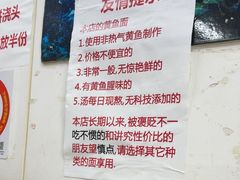 友情提示
本店的黄鱼面
1.使用非热气黄鱼制作
2.价格不便宜的
3.非常一般,无惊艳鲜的
4.有黄鱼腥味的
5.汤每日现熬,无科技添加的
本店长期以来,被褒贬不一
吃不惯的和讲究性价比的
朋友望慎点,请选择其它种
类的面享用.
浇头
放半份